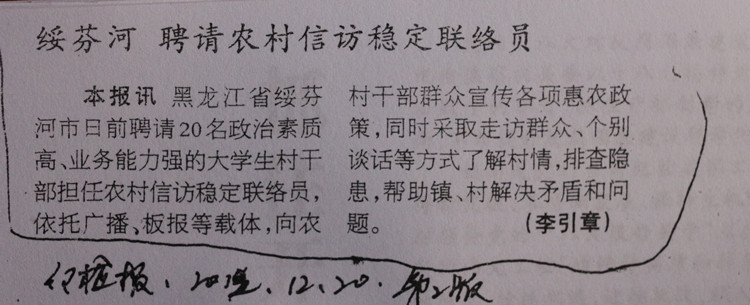 绥芬河 聘请农村信访稳定联络员
本报讯 黑龙江省绥芬
河市日前聘请20名政治素质
高、业务能力强的大学生村干
部担任农村信访稳定联络员，
依托广播、板报等载体，向农
村干部群众宣传各项惠农政
策，同时采取走访群众、个别
谈话等方式了解村情，排查隐
患，帮助镇、村解决矛盾和问
题。 （李引章）
报、12.20.第2版